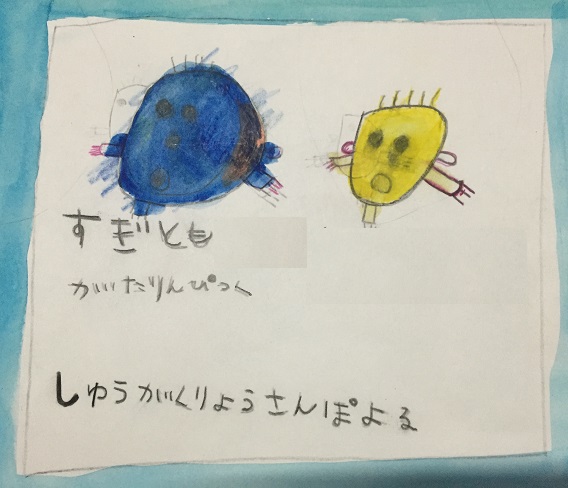 すぎとも
がいたりんぴっく
しゅうがくりょうさんぽよる